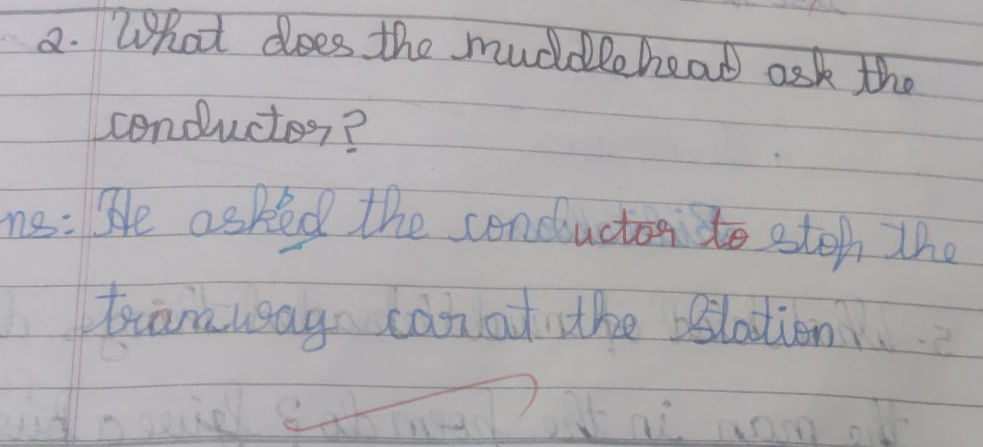 2. What does the muddlehead ask the
conductor?
ns: He asked the conductor to stop the
tramway car at the Station